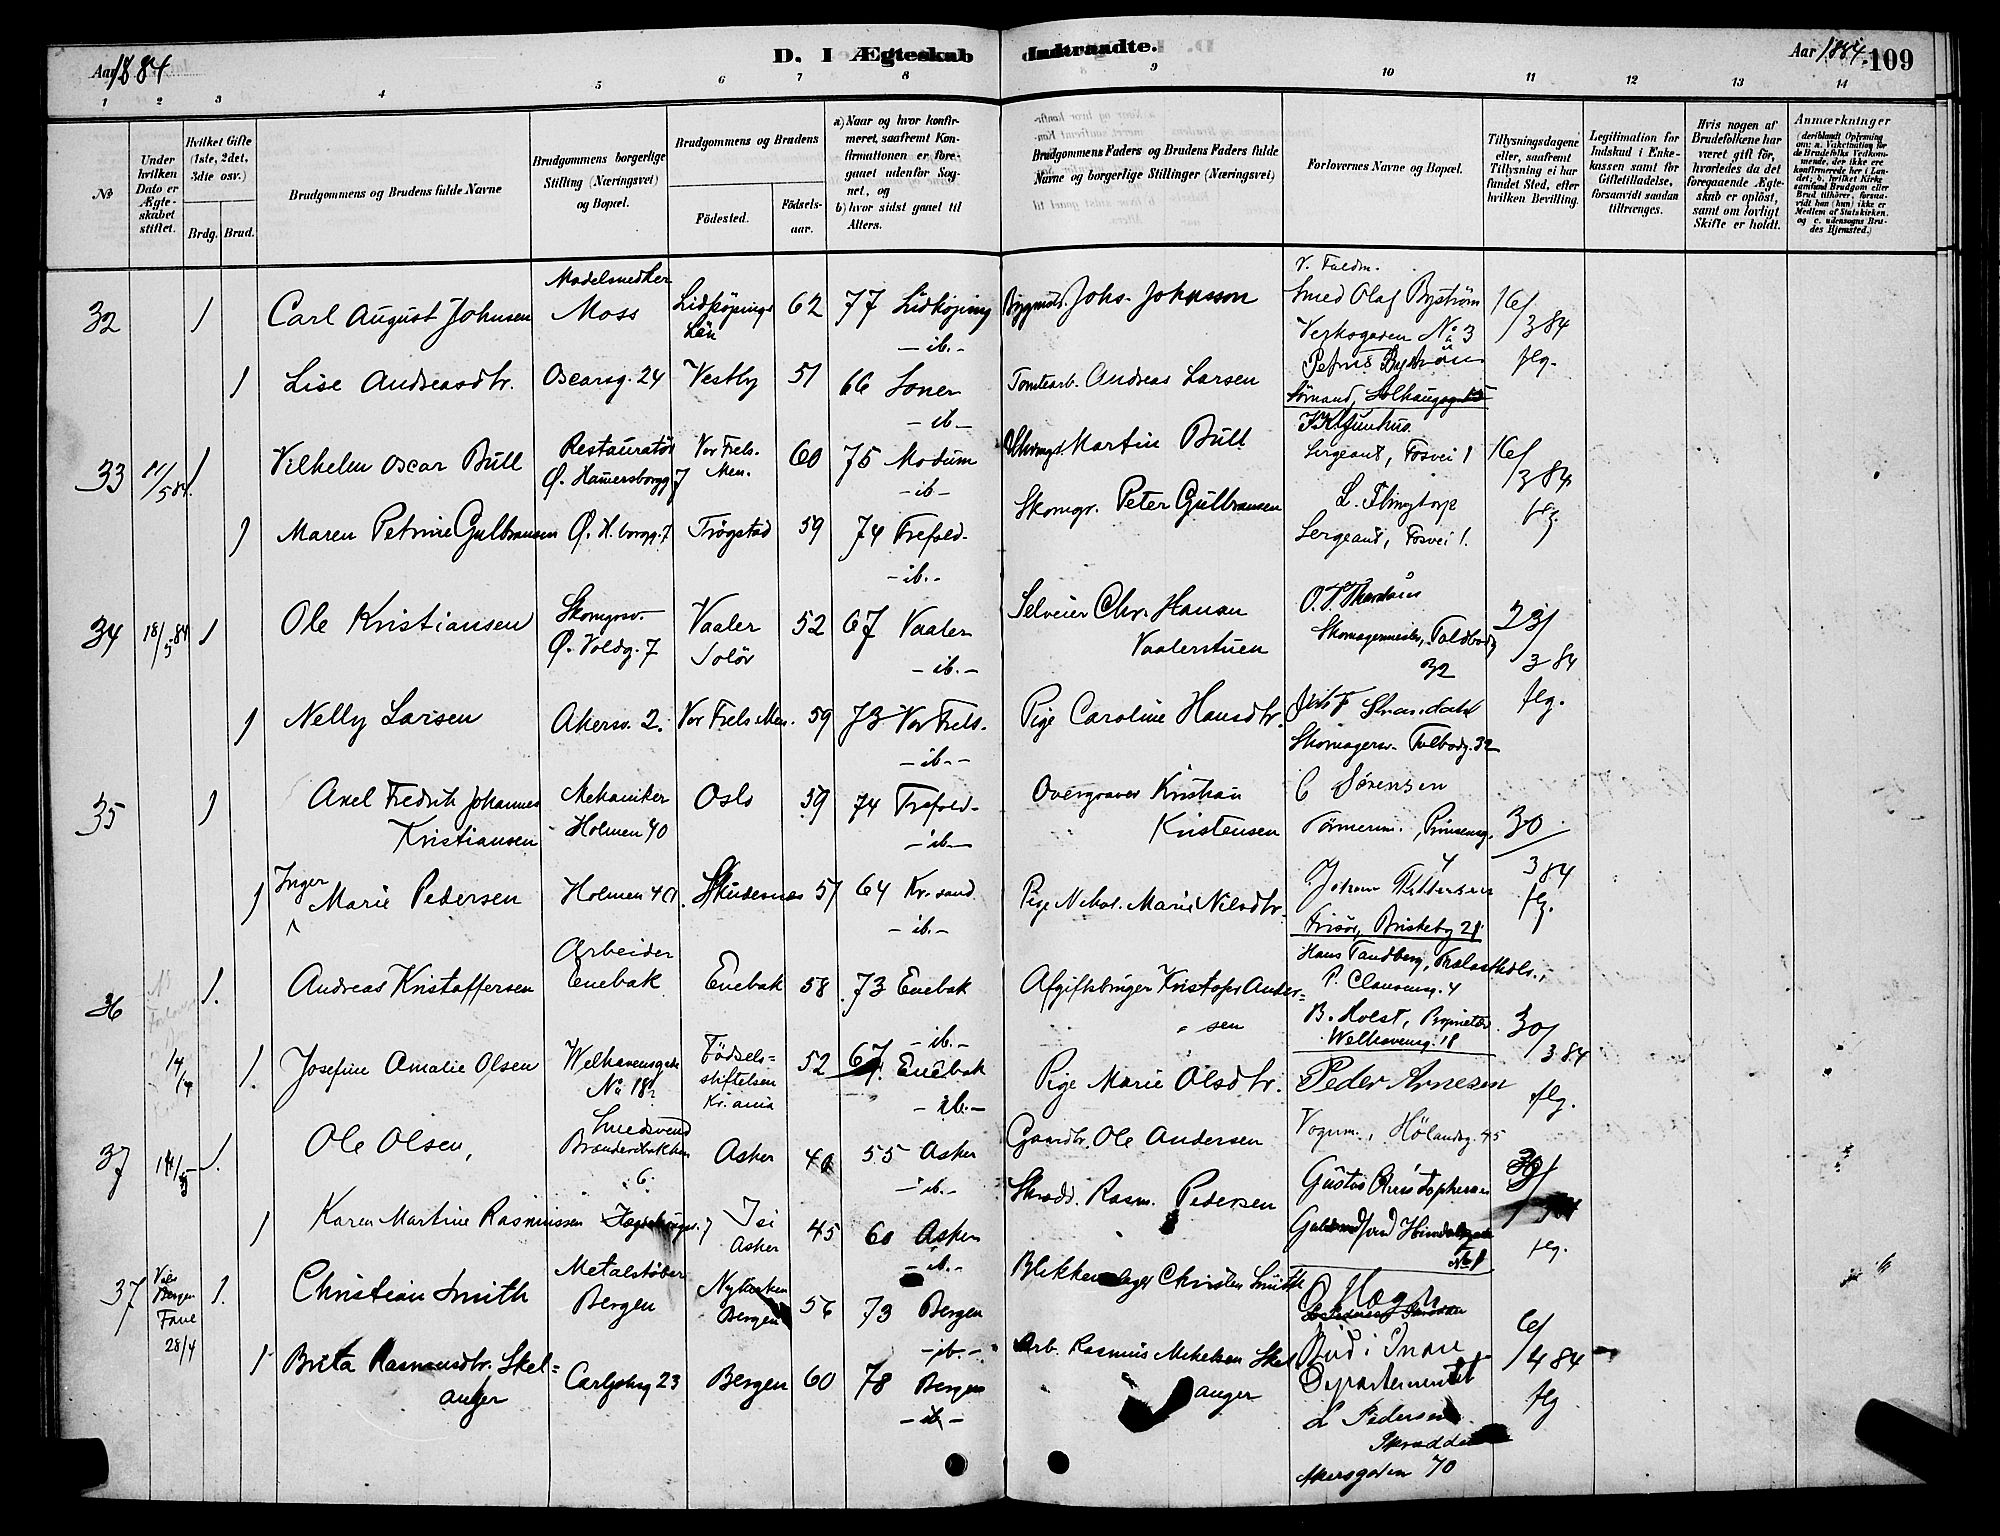 Aar 1884
D. I Ægteskab Indtraadte.
Aar 1884. 109
1 2 3 4 5 6 7 8 9 10 11 12 13 14
No
Under hvilken Dato er Ægteskabet stiftet.
Hvilket Gifte (1ste, 2det, 3die osv.)
Brdg. Brud.
Brudgommens og Brudens fulde Navne
Brudgommens borgerlige Stilling (Næringsvei) og Bopæl.
Brudgommens og Brudens
Födested.
Födselsaar.
a) Naar og hvor konfirmeret, saafremt Konfirmationen er foregaaet udenfor Sognet, og
b) hvor sidst gaaet til Alters.
Brudgommens Faders og Brudens Faders fulde Navne og borgerlige Stillinger (Næringsvei)
Forlovernes Navne og Bopæl.
Tillysningsdagene eller, saafremt Tillysning ei har fundet Sted, efter hvilken Bevilling.
Legitimation for Indskud i Enkekassen samt for Giftetilladelse, forsaavidt saadan tiltrænges.
Hvis nogen af Brudefolkene har været gift för, hvorledes da det foregaaende Ægteskab er oplöst, samt om lovligt Skifte er holdt.
Anmærkninger
(deriblandt Oplysning om: a. Vakcination for de Brudefolks Vedkommende, der ikke ere konfirmerede her i Landet; b. hvilket Kirkesamfund Brudgom eller Brud tilhörer, forsaavidt han (hun) ikke er Medlem af Statskirken. og c. udensogns Brudes Hjemsted.)
32 1 Carl August Johnsen Modelsnedker Moss Lidköpings Län 62 77 Lidköping -ib.- Johs. Johnsson
Smed Olaf Byström Verksgaden No 3 16/3 84 flg.
1 Lise Andreasdtr. Oscarsg. 24 Vestby 51 66 Soner -ib- Tomtearb. Andreas Larsen
Petrus Byström
33 11/5 84. 1 Vilhelm Oscar Bull Restauratør Ø. Hamersborgg 7 Vor Frels. Men. 60 75 Modum -ib- Martin Bull
Sergeant, Fosvei 1 16/3 84 flg.
1 Maren Petrine Gulbransen Ø. H.borgg. 7 Trøgstad 59 74 Trefold. -ib.- Skomgr. Peter Gulbransen
Sergeant, Fosvei 1.
34 18/5 84 1 Ole Kristiansen Skomgsv. Ø. Voldg. 7 Vaaler Solör 52 67 Vaaler -ib.- Selveier Chr. Hansen Vaalerstuen
Skomagermester, Toldbodg 32 23/3 84 flg.
1 Nelly Larsen Akersv. 2. Vor Frels Men. 59 73 Vor Frels. -ib.- Pige Caroline Hansdtr.
Skomagersv. Tolbodg. 32
35 1 Axel Fredrik Johannes Kristiansen Mekaniker Holmen 40 Oslo 59 74 Trefold. -ib- Overgraver Kristian Kristensen
C Sørensen Tømmerm. Prinsensg. 4 30/3 84 flg.
1 Inger Marie Pedersen Holmen 40. Skudesnes 57 64 Kr.sand -ib.- Pige Nikol. Marie Nilsdtr.
Johan Pettersen Frisör, Briskeby 21.
36 14/4 1. Andreas Kristoffersen Arbeider Enebak Enebak 58 73 Enebak -ib.- Afgiftsbruger Kristofer Andersen
Hans Tandberg, Trælasthdl., P. Clausensg. 4 30/3 84 flg.
1. Josefine Amalie Olsen Welhavensgade No 18 Födselsstiftelsen Kr.ania 52 67. Enebak -ib.- Pige Marie Olsdtr.
B. Holst, Proprietær. Welhavensg. 18
37 14/5 1. Ole Olsen, Smedsvend 6 Asker 40 55 Asker -ib.- Gaardbr. Ole Andersen
Peder Arnesen Vognm., Hölandsg. 45 30/ flg.
1 Karen Martine Rasmussen Asker 45 60 Asker -ib.- Skrædd. Rasm. Pedersen
Gustav Christophersen No 1
37 Viet Bergen Fane 28/4 1. Christian Smith Metalstøber Bergen Nykirken Bergen 56 73 Bergen -ib.- Blikkenslager Christen Smith
O Moen Bud i Indre Departementet 6/4 84 flg
1. Brita Rasmusdtr. Skelanger 23 Bergen 60 78 Bergen -ib- Arb. Rasmus Mikelsen Skelanger
L Pedersen Skrædder Akersgaden 70